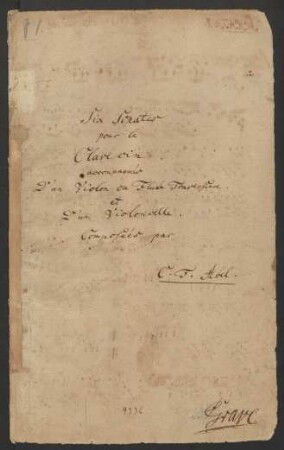 Six Sonates
pour le
Clavecin
accompagnés
D'un Violon ou Flute Traversiere
et
D'un Violoncelle.
Composées par
C. F. Abel.
Grave